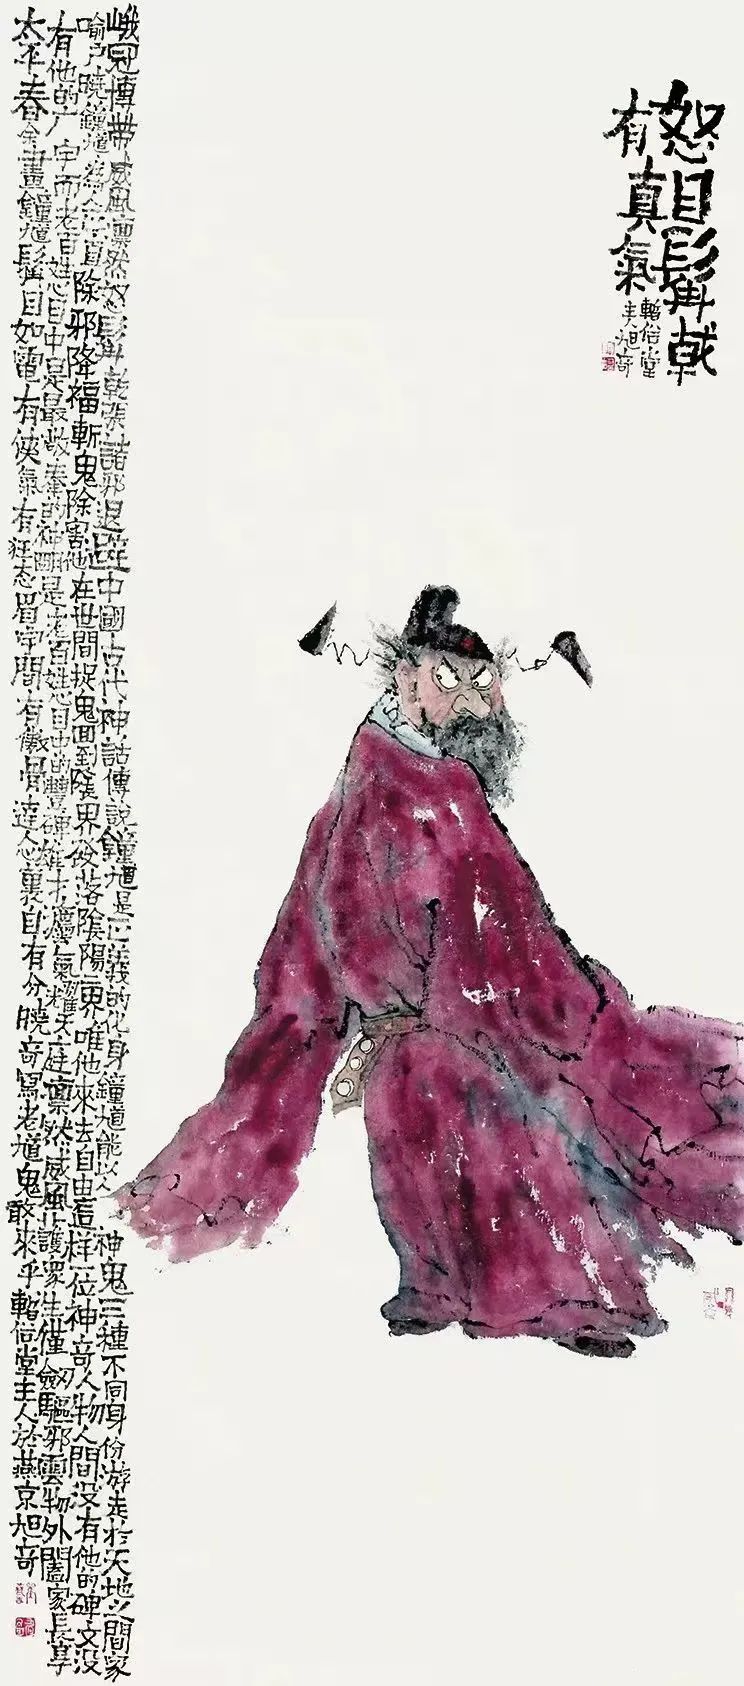 怒目髯戟
有真氣
俗堂
主旭奇
峨冠博帶威風凛然怒髯乾張諸邪退避中國古代神話傳說鐘馗是正義的化身鐘馗能以人神鬼三種不同身份游走於天地之間家
喻户曉鐘馗為人間除邪降福斬鬼除害他在世間捉鬼回到陰界發落陰陽二界唯他來去自由這样一位神奇人物人間没有他的碑文没
有他的广宇而老百姓心目中是最敬奉的神明是老百姓心目中的豐碑雄才氣耀天庭凛然威風護衆生僅劍驅邪雲物外闔家長享
太平春余畫鐘馗髯目如電有俠氣有狂态眉宇間有傲骨達人心裏自有分曉奇寫老馗鬼敢來乎俗堂主人於燕京旭奇